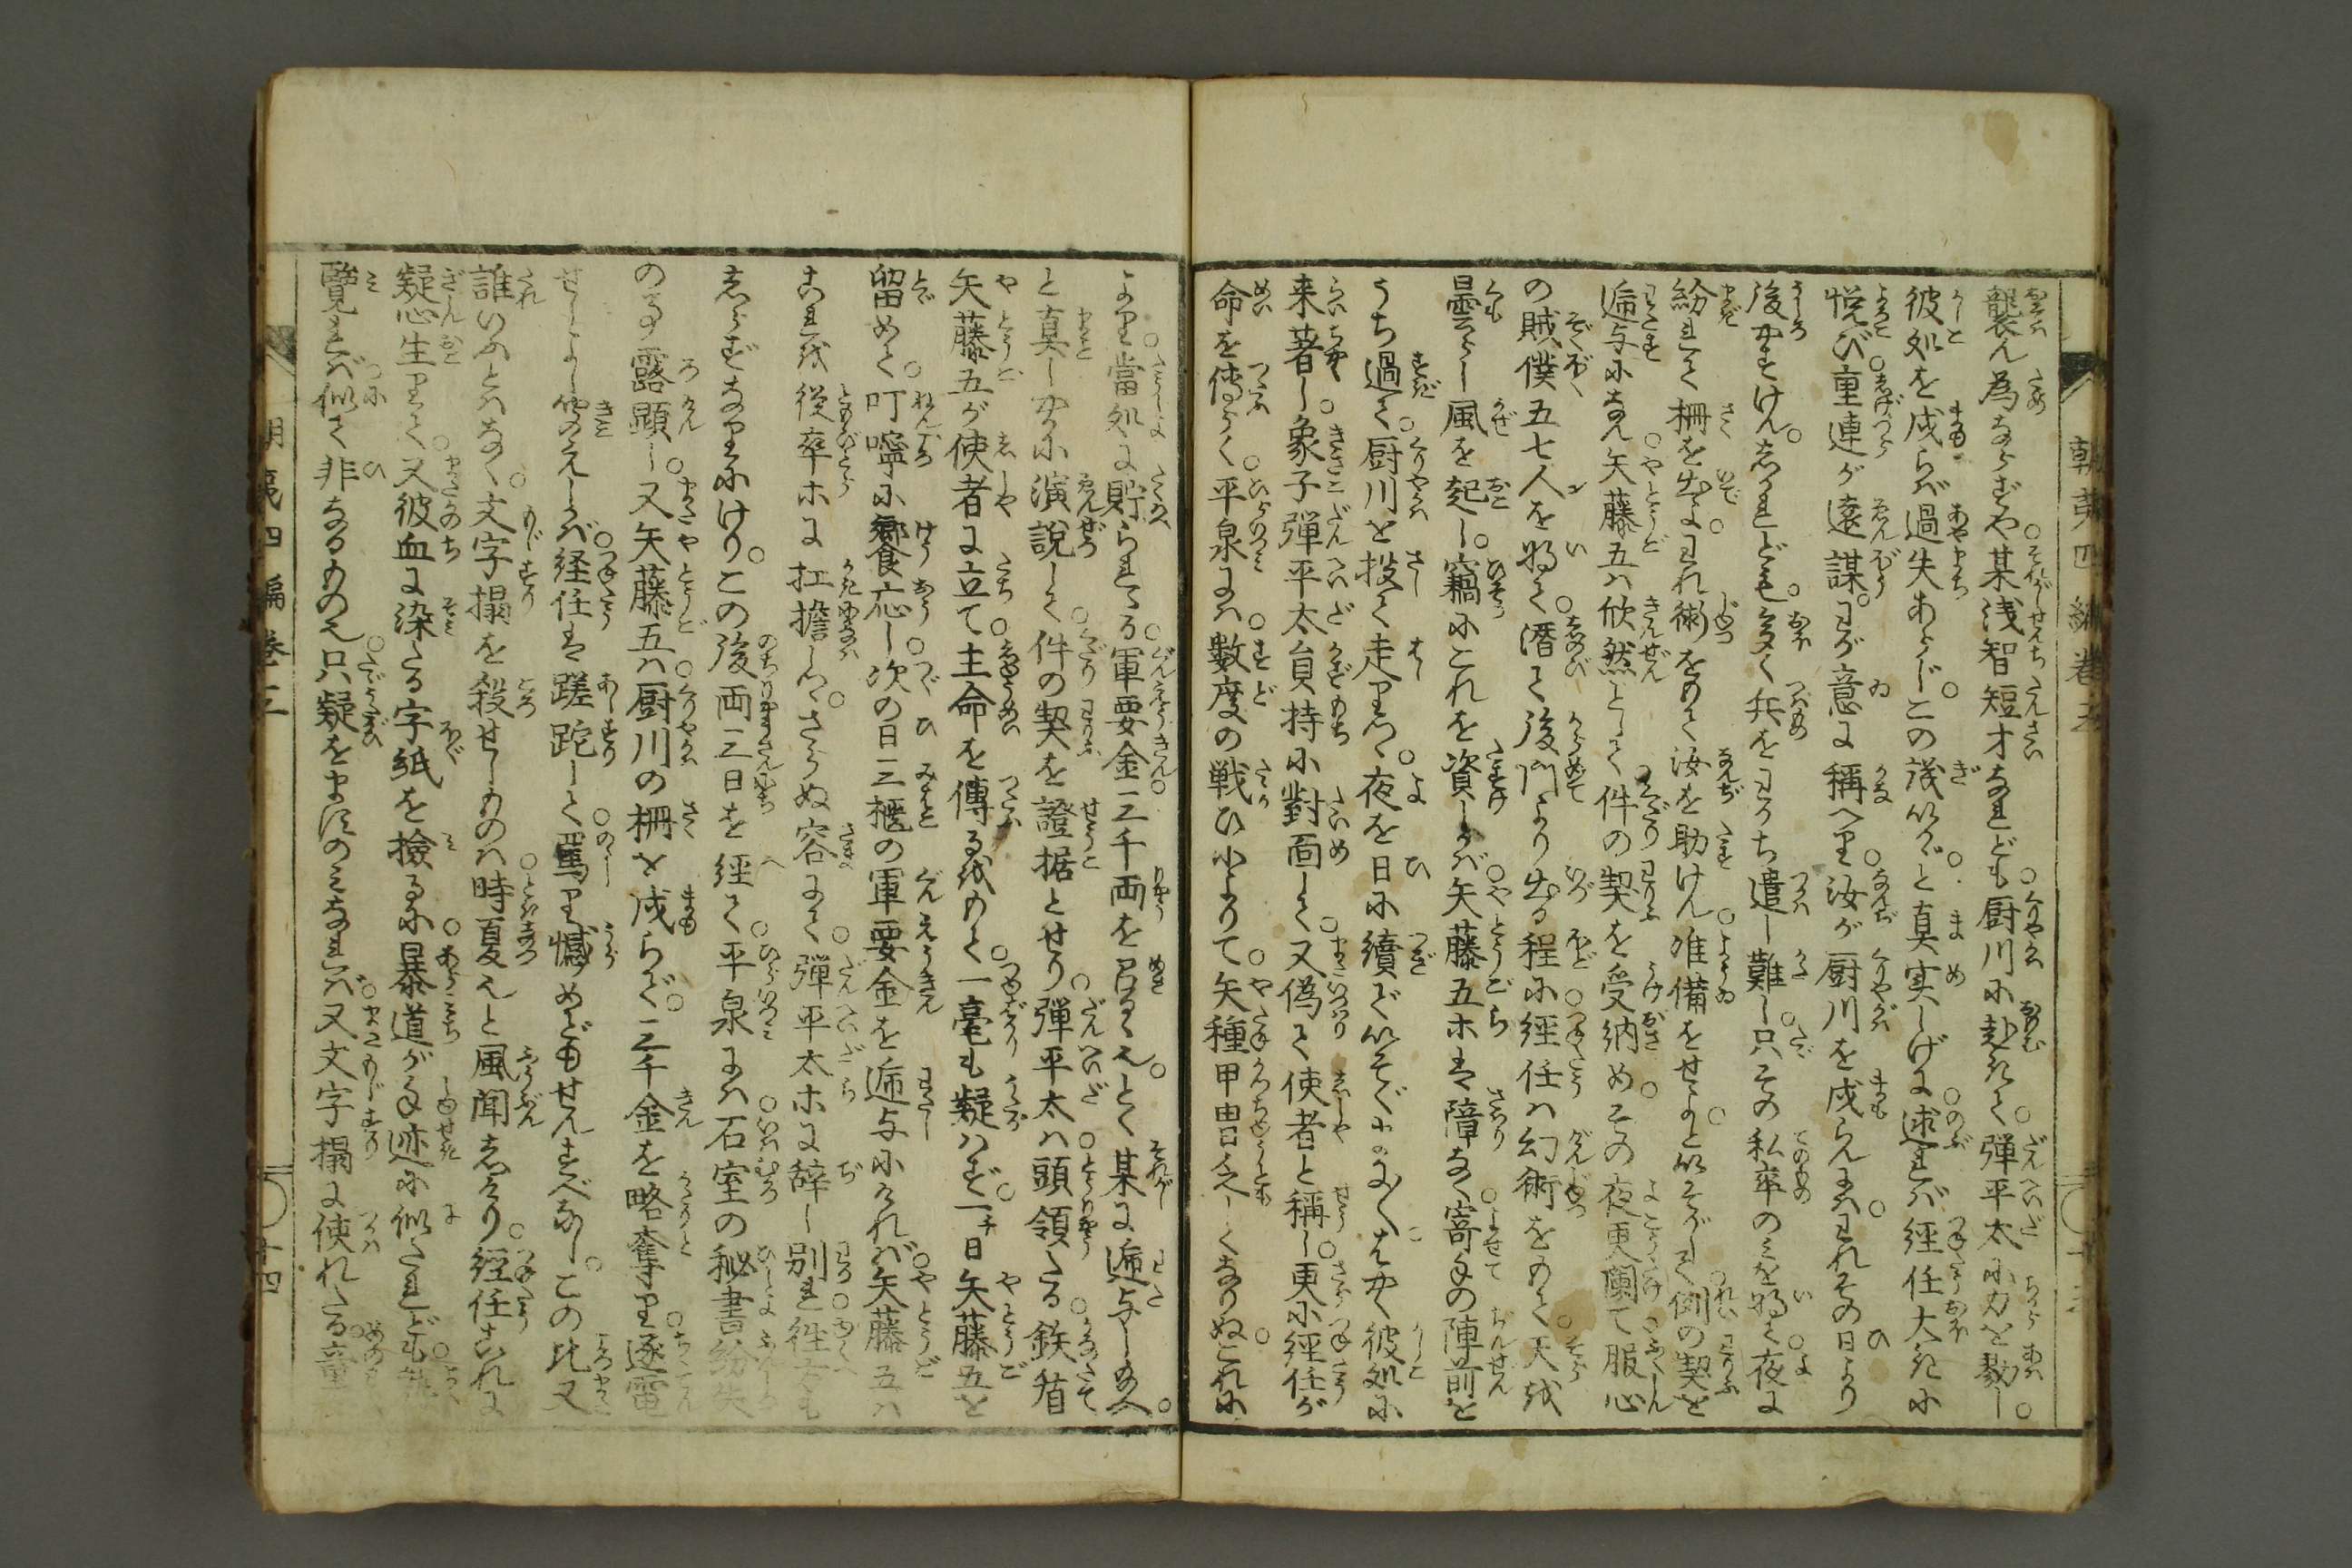 襲ん為ならずや。某浅智短才なれども。厨川に赴きて。弾平太に力を勠し。
彼処を戍らば過失あらじ。この議いかゞ。と真実しげに述れば。経任大きに
悦び。重連が遠謀。わが意に称へり。汝が厨川を戍らんには。われその日より
後やすけん。しかれども。多く兵をわかち遣し難し。只その私卒のみを将て。夜に
紛れて柵を出よ。われ術をもて汝を助けん。准備をせよ。といそがして。例の契を
逓与になん。矢藤五は欣然として。件の契を受納め。その夜更闌て。服心
の賊僕五七人を将て。潜て後門より出る程に。経任は幻術をもて。天を
曇らし風を起し。竊にこれを資しかば。矢藤五ホは障なく。寄手の陣前を
うち過て。厨川を投て走りつゝ。夜を日に續ぎていそぐにぞ。はやく彼処に
来著し。象子弾平太員持に對面して。又偽て使者と稱し。更に経任が
命を傳ふらく。平泉には。數度の戦ひによりて。矢種甲冑乏しくなりぬ。これに
より當処に貯られたる。軍要金三千両を召るゝ也。とく某に逓与し給へ。
と真しやかに演説して。件の契を證据とせり。弾平太は頭領たる。鉄省
矢藤五が使者に立て。主命を傳るをもて。一毫も疑はず。一日矢藤五を
留めて。叮嚀に饗応し。次の日三櫃の軍要金を逓与にければ。矢藤五は
これを従卒ホに扛擔しつ。さらぬ容にて。弾平太ホに辞し別れ。往方も
しらずなりにけり。この後両三日を経て。平泉には。石室の秘書紛失
の事露顕し。又矢藤五は厨川の柵を戍らで。三千金を略奪り。逐電
せしよし聞えしかば。経任は蹉跎しと罵り憾めどもせんすべなし。この比又
誰いふとはなく。文字搨を殺せしものは。時夏也と風聞しけり。経任これに
疑心生りて。又彼血に染たる字紙を撿るに。暴道が手迹に似たれども。
覽れば似て非なるもの也。只疑をますのみなれば。又文字搨に使れたる
朝夷四編巻三
朝夷四編巻三
十四